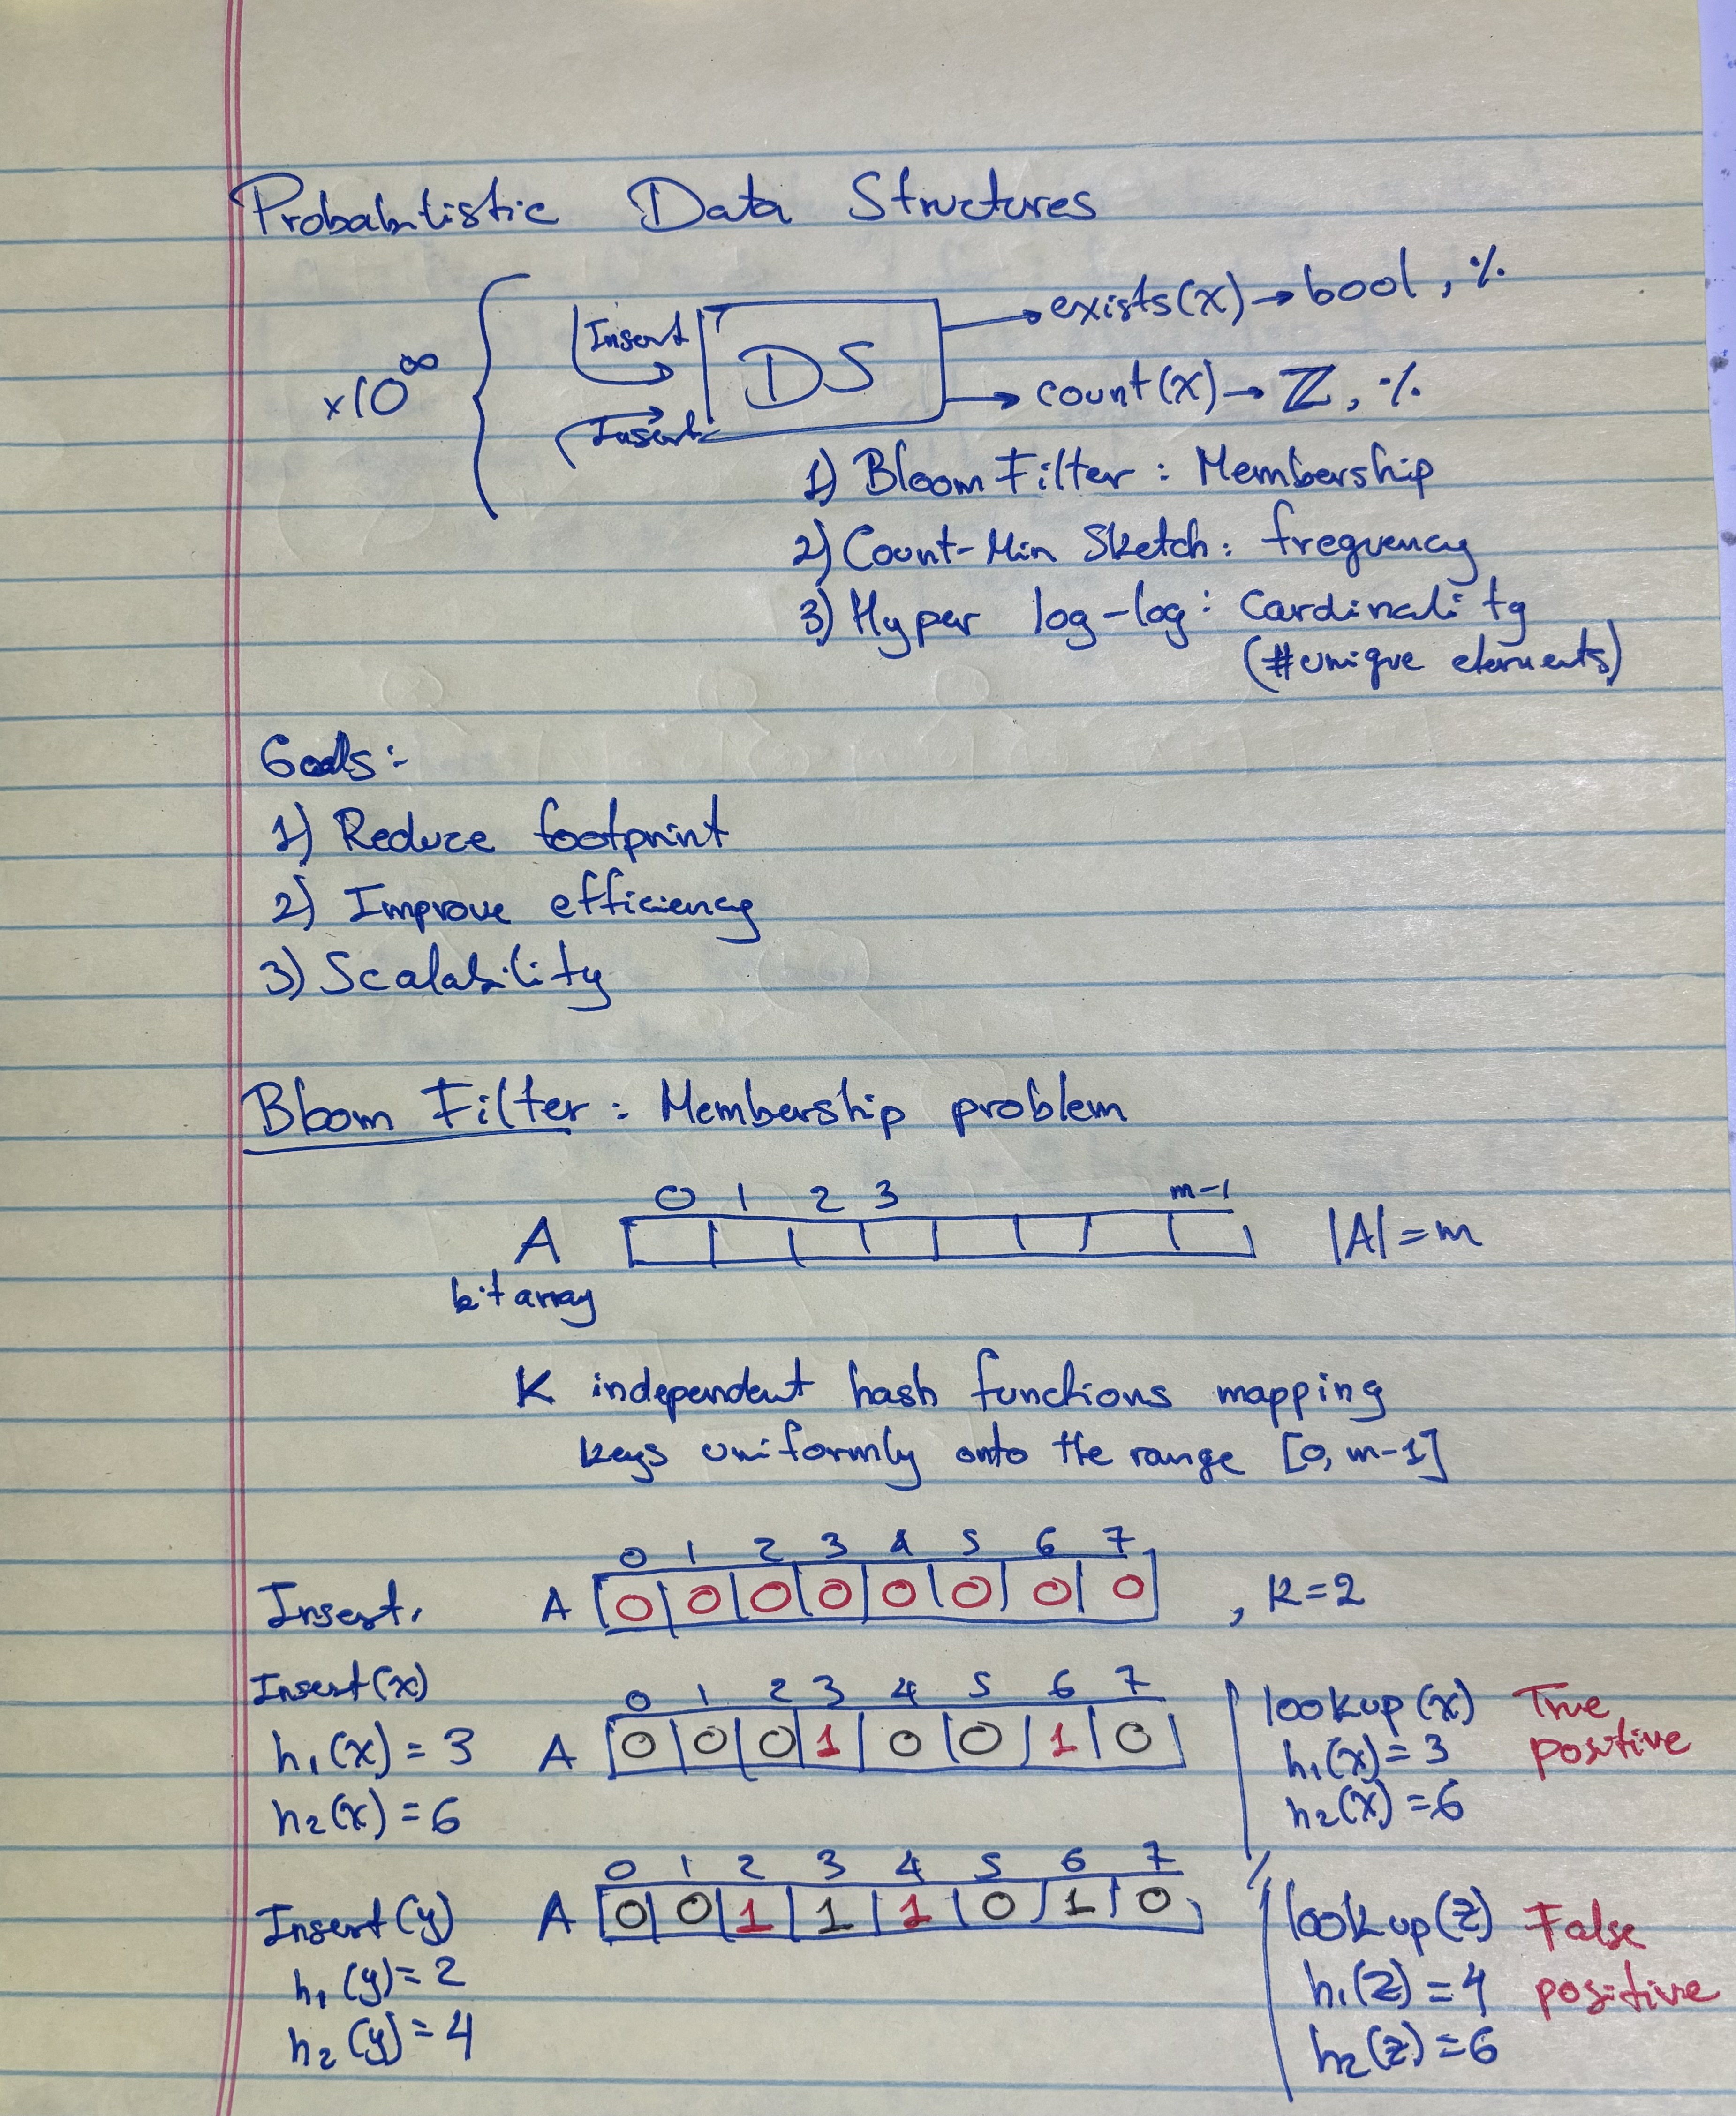 Probabilistic Data Structures
×10^∞ { Insert Insert DS
→ exists(x) → bool, %
→ count(x) → ℤ, %
1) Bloom Filter : Membership
2) Count-Min Sketch : frequency
3) Hyper log-log : Cardinality
(#unique elements)
Goals :-
1) Reduce footprint
2) Improve efficiency
3) Scalability
Bloom Filter : Membership problem
0 1 2 3 m-1
A |A| = m
bit array
K independent hash functions mapping
keys uniformly onto the range [0, m-1]
0 1 2 3 4 5 6 7
Insert, A 0 0 0 0 0 0 0 0 , K=2
Insert(x) 0 1 2 3 4 5 6 7 lookup(x) True
h1(x) = 3 A 0 0 0 1 0 0 1 0 h1(x) = 3 positive
h2(x) = 6 h2(x) = 6
0 1 2 3 4 5 6 7
Insert(y) A 0 0 1 1 1 0 1 0 lookup(z) False
h1(y) = 2 h1(z) = 4 positive
h2(y) = 4 h2(z) = 6